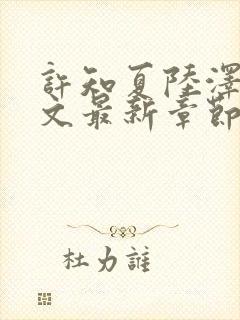 許知夏陸澤
文最新章節
杜力誰